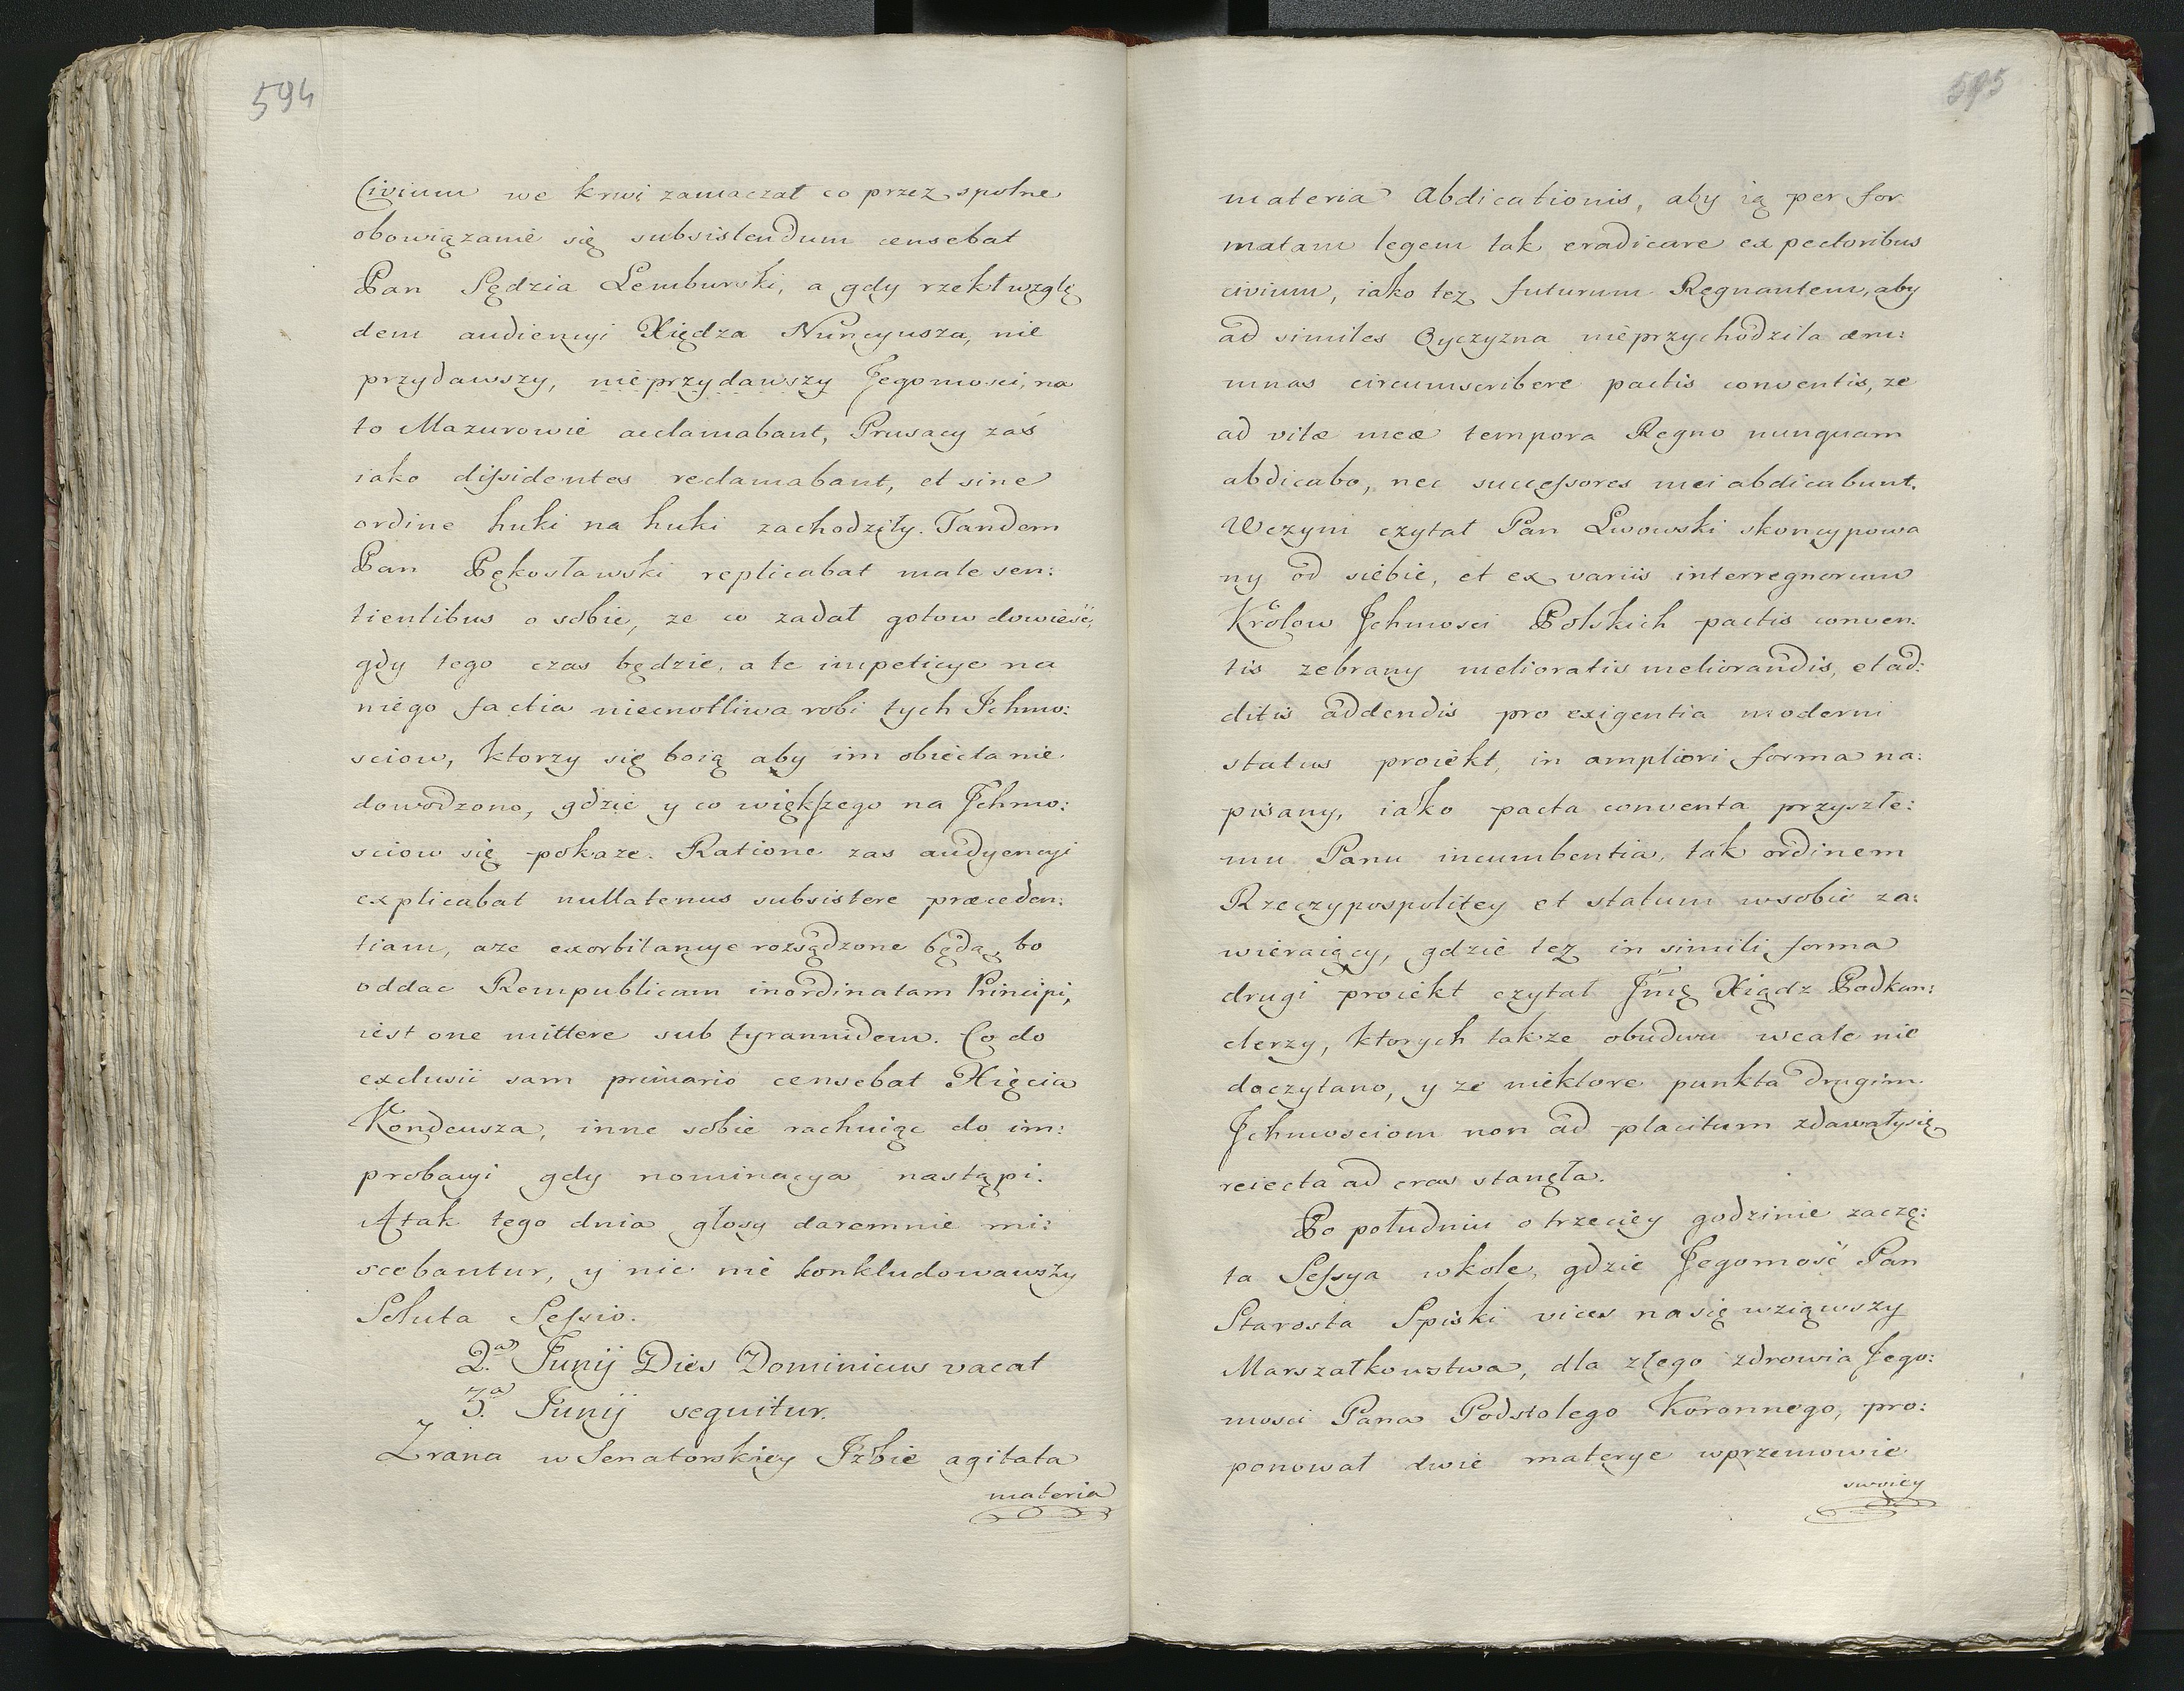 594
Civium we krwi zamaczał co przez spolne
obowiązanie się subsistendum censebat
Pan Sędzia Lemburski, a gdy rzekł wzglę
dem audiencyi Xiędza Nuncyusza, nie
przydawszy, nie przydawszy Jegomosci, na
to Mazurowie acclamabant, Prusacy zaś
iako dissidentes reclamabant, et sine
ordine huki na huki zachodziły. Tandem
Pan Pękosławski replicabat male sen:
tientibus o sobie, ze co zadał gotow dowieść,
gdy tego czas będzie, a te impeticye na
niego factia niecnotliwa robi tych Ichmo:
sciow, ktorzy się boią aby im obiecta nie
dowodzono, gdzie y co większego na Ichmo:
sciow się pokaze. Ratione zas audyencyi
explicabat nullatenus subsistere præceden:
tiam, aze exorbitancye rozsądzone będą, bo
oddac Rempublicam inordinatam Principi,
iest one mittere sub tyrannidem. Co do
exclusii sam primario censebat Xięcia
Kondeusza, inne sobie rachuiąc do im:
probacyi gdy nominacya nastąpi.
A tak tego dnia głosy daremnie mi:
scebantur, y nic nie konkludowawszy
Soluta Sessio.
2.a Junij Dies Dominicus vacat
3.a Junij sequitur.
Zrana w Senatorskiey Izbie agitata
materia
595
materia Abdicationis, aby ią per for
matam legem tak eradicare ex pectoribus
civium, iako tez futurum Regnantem, aby
ad similes Oyczyzna nieprzychodziła æru:
mnas circumscribere pactis conventis, ze
ad vitæ meæ tempora Regno nunquam
abdicabo, nec successores mei abdicabunt.
Wczym czytał Pan Lwowski skoncypowa
ny od siebie, et ex variis interregnorum
Krolow Ichmosci Polskich pactis conven:
tis zebrany melioratis meliorandis, et ad:
ditis addendis pro exigentia moderni
status proiekt, in ampliori forma na:
pisany, iako pacta conventa przyszłe:
mu Panu incumbentia, tak ordinem
Rzeczypospolitey et statum wsobie za:
wieraiący, gdzie tez in simili forma
drugi proiekt czytał Jmę Xiądz Podkan:
clerzy, ktorych takze obudwu wcale nie
doczytano, y ze niektore punkta drugim
Ichmosciom non ad placitum zdawałysię,
reiecta ad cras stanęła.
Po południu o trzeciey godzinie zaczę:
ta Sessya wkole, gdzie Jegomość Pan
Starosta Spiski vices nasię wziąwszy
Marszałkowstwa, dla złego zdrowia Jego:
mosci Pana Podstolego Koronnego, pro:
ponował dwie materye wprzemowie
swoiey